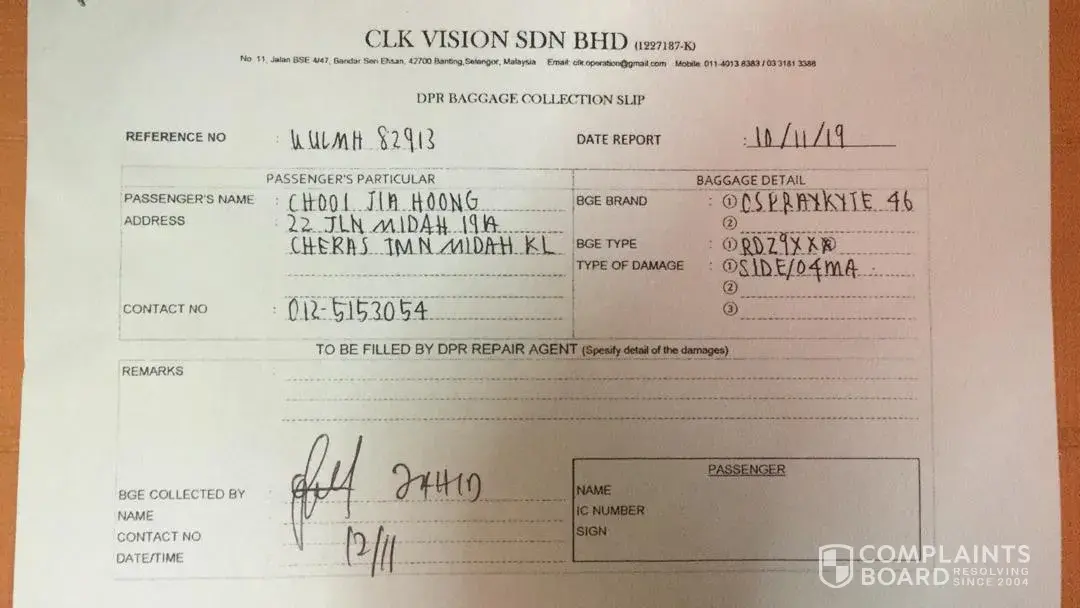 CLK VISION SDN BHD (1227187-K)
No 11, Jalan BSE 4/47, Bandar Seri Ehsan, 42700 Banting, Selangor, Malaysia Email: clk.operation@gmail.com Mobile: 011-4013 8383 / 03 3181 3386
DPR BAGGAGE COLLECTION SLIP
REFERENCE NO : KULMH 82913 DATE REPORT : 10/11/19
PASSENGER'S PARTICULAR BAGGAGE DETAIL
PASSENGER'S NAME : CHOOI JIA HOONG BGE BRAND : ① CSPRAYKYTE 46
ADDRESS : 22 JLN MIDAH 19A ②
CHERAS TMN MIDAH KL BGE TYPE : ① RDZ9XXX
TYPE OF DAMAGE : ① SIDE/04MA
②
CONTACT NO : 012-5153054 ③
TO BE FILLED BY DPR REPAIR AGENT (Specify detail of the damages)
REMARKS :
PASSENGER
BGE COLLECTED BY : ZAHID NAME
NAME IC NUMBER
CONTACT NO SIGN
DATE/TIME 12/11
COMPLAINTS
BOARD RESOLVING SINCE 2004